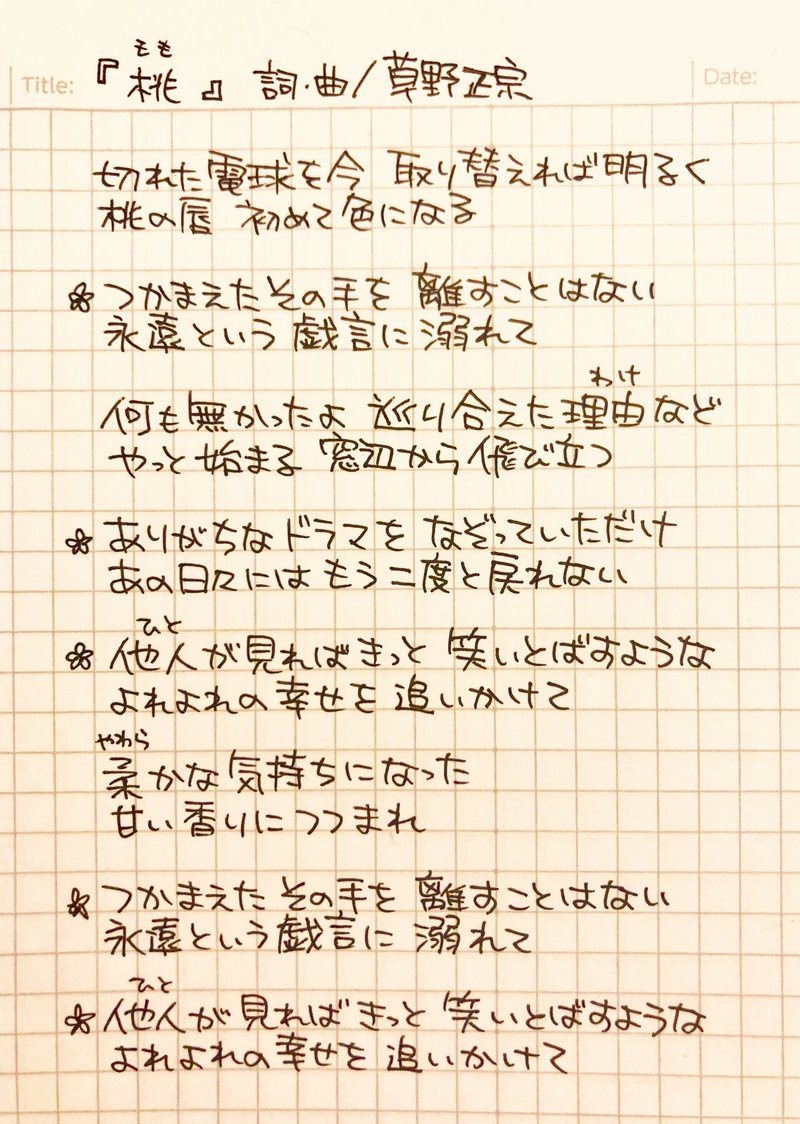 Title:
『桃』 詞・曲/草野正宗
もも
Date:
切れた電球を今 取り替えれば明るく
桃の唇 初めて色になる
✽ つかまえたその手を 離すことはない
永遠という 戯言に 溺れて
わけ
何も無かったよ 巡り合えた理由など
やっと始まる 窓辺から飛び立つ
✽ ありがちなドラマを なぞっていただけ
あの日々には もう二度と戻れない
ひと
✽ 他人が見ればきっと 笑いとばすような
よれよれの幸せを 追いかけて
やわら
柔かな気持ちになった
甘い香りにつつまれ
✽ つかまえた その手を 離すことはない
永遠という戯言に 溺れて
ひと
✽ 他人が見ればきっと 笑いとばすような
よれよれの幸せを 追いかけて